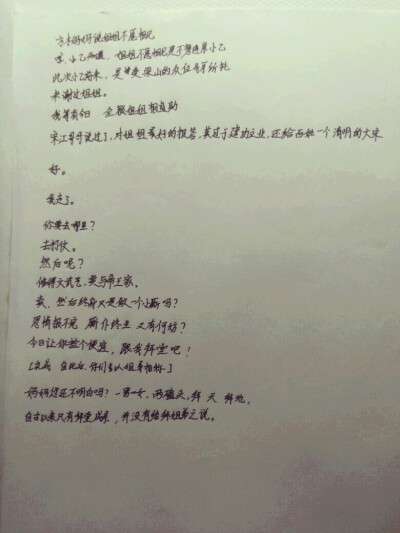 方才妈妈说姐姐不愿相见
嗯，小乙知道，姐姐不愿相见是不想连累小乙
此次小乙前来，是梁山的众位哥哥所托
来谢过姐姐。
我等有今日 全赖姐姐相助
宋江哥哥说过了，对姐姐最好的报答，莫过于建功立业，还给百姓一个清明的大宋
好。
我走了。
你要去哪里？
去打仗。
然后呢？
修得文武艺，卖与帝王家。
卖，然后终身只是做一个小厮吗？
恩情报不完 厮仆终生 又有何妨？
今日让你捡个便宜，跟我拜堂吧！
自此后，你们要以姐弟相称
妈妈您还不明白吗？一男一女，两磕头，拜天拜地，
自古以来只有拜堂成亲，并没有结拜姐弟之说。